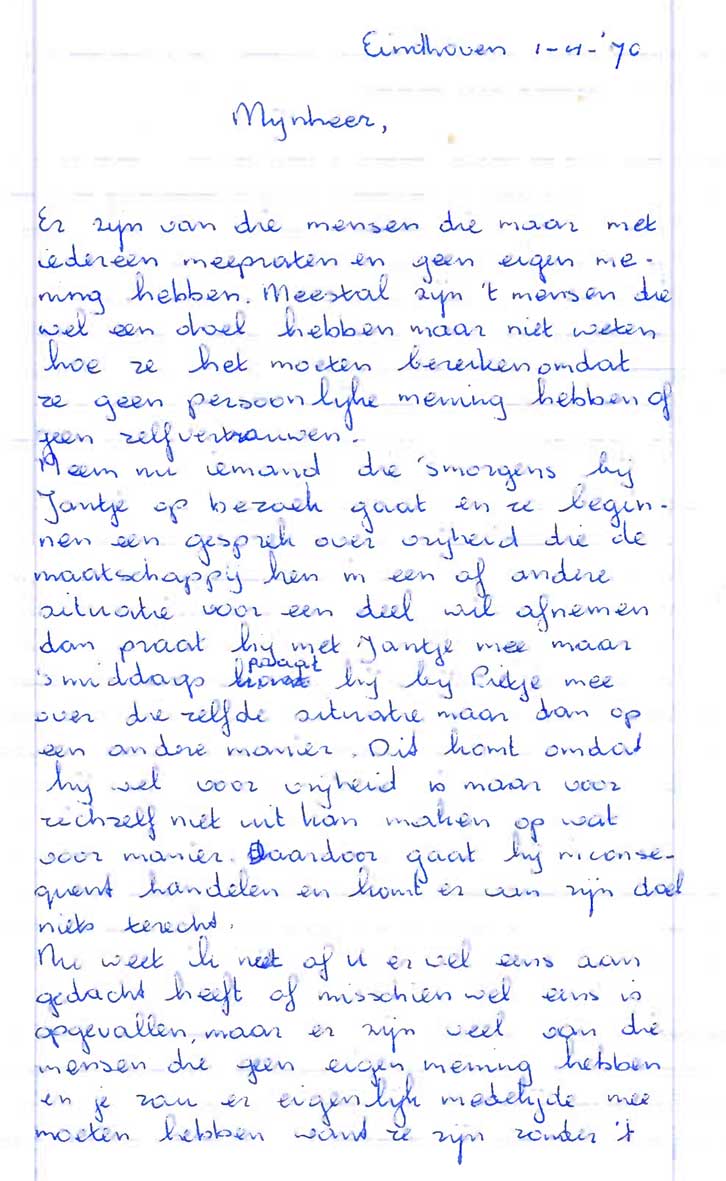 Eindhoven 1-4-'70
Mijnheer,
Er zijn van die mensen die maar met
iedereen meepraten en geen eigen me-
ning hebben. Meestal zijn 't mensen die
wel een doel hebben maar niet weten
hoe ze het moeten bereiken omdat
ze geen persoonlijke mening hebben of
geen zelfvertrouwen.
Neem nu iemand die 'smorgens bij
Jantje op bezoek gaat en ze begin-
nen een gesprek over vrijheid die de
maatschappij hen in een of andere
situatie voor een deel wil afnemen
dan praat hij met Jantje mee maar
's middags praat hij bij Pietje mee
over die zelfde situatie maar dan op
een andere manier. Dit komt omdat
hij wel voor vrijheid is maar voor
zichzelf niet uit kan maken op wat
voor manier. Daardoor gaat hij inconse-
quent handelen en komt er van zijn doel
niets terecht.
Nu weet ik niet of u er wel eens aan
gedacht heeft of misschien wel eens is
opgevallen, maar er zijn veel van die
mensen die geen eigen mening hebben
en je zou er eigenlijk medelijde mee
moeten hebben want ze zijn zonder 't